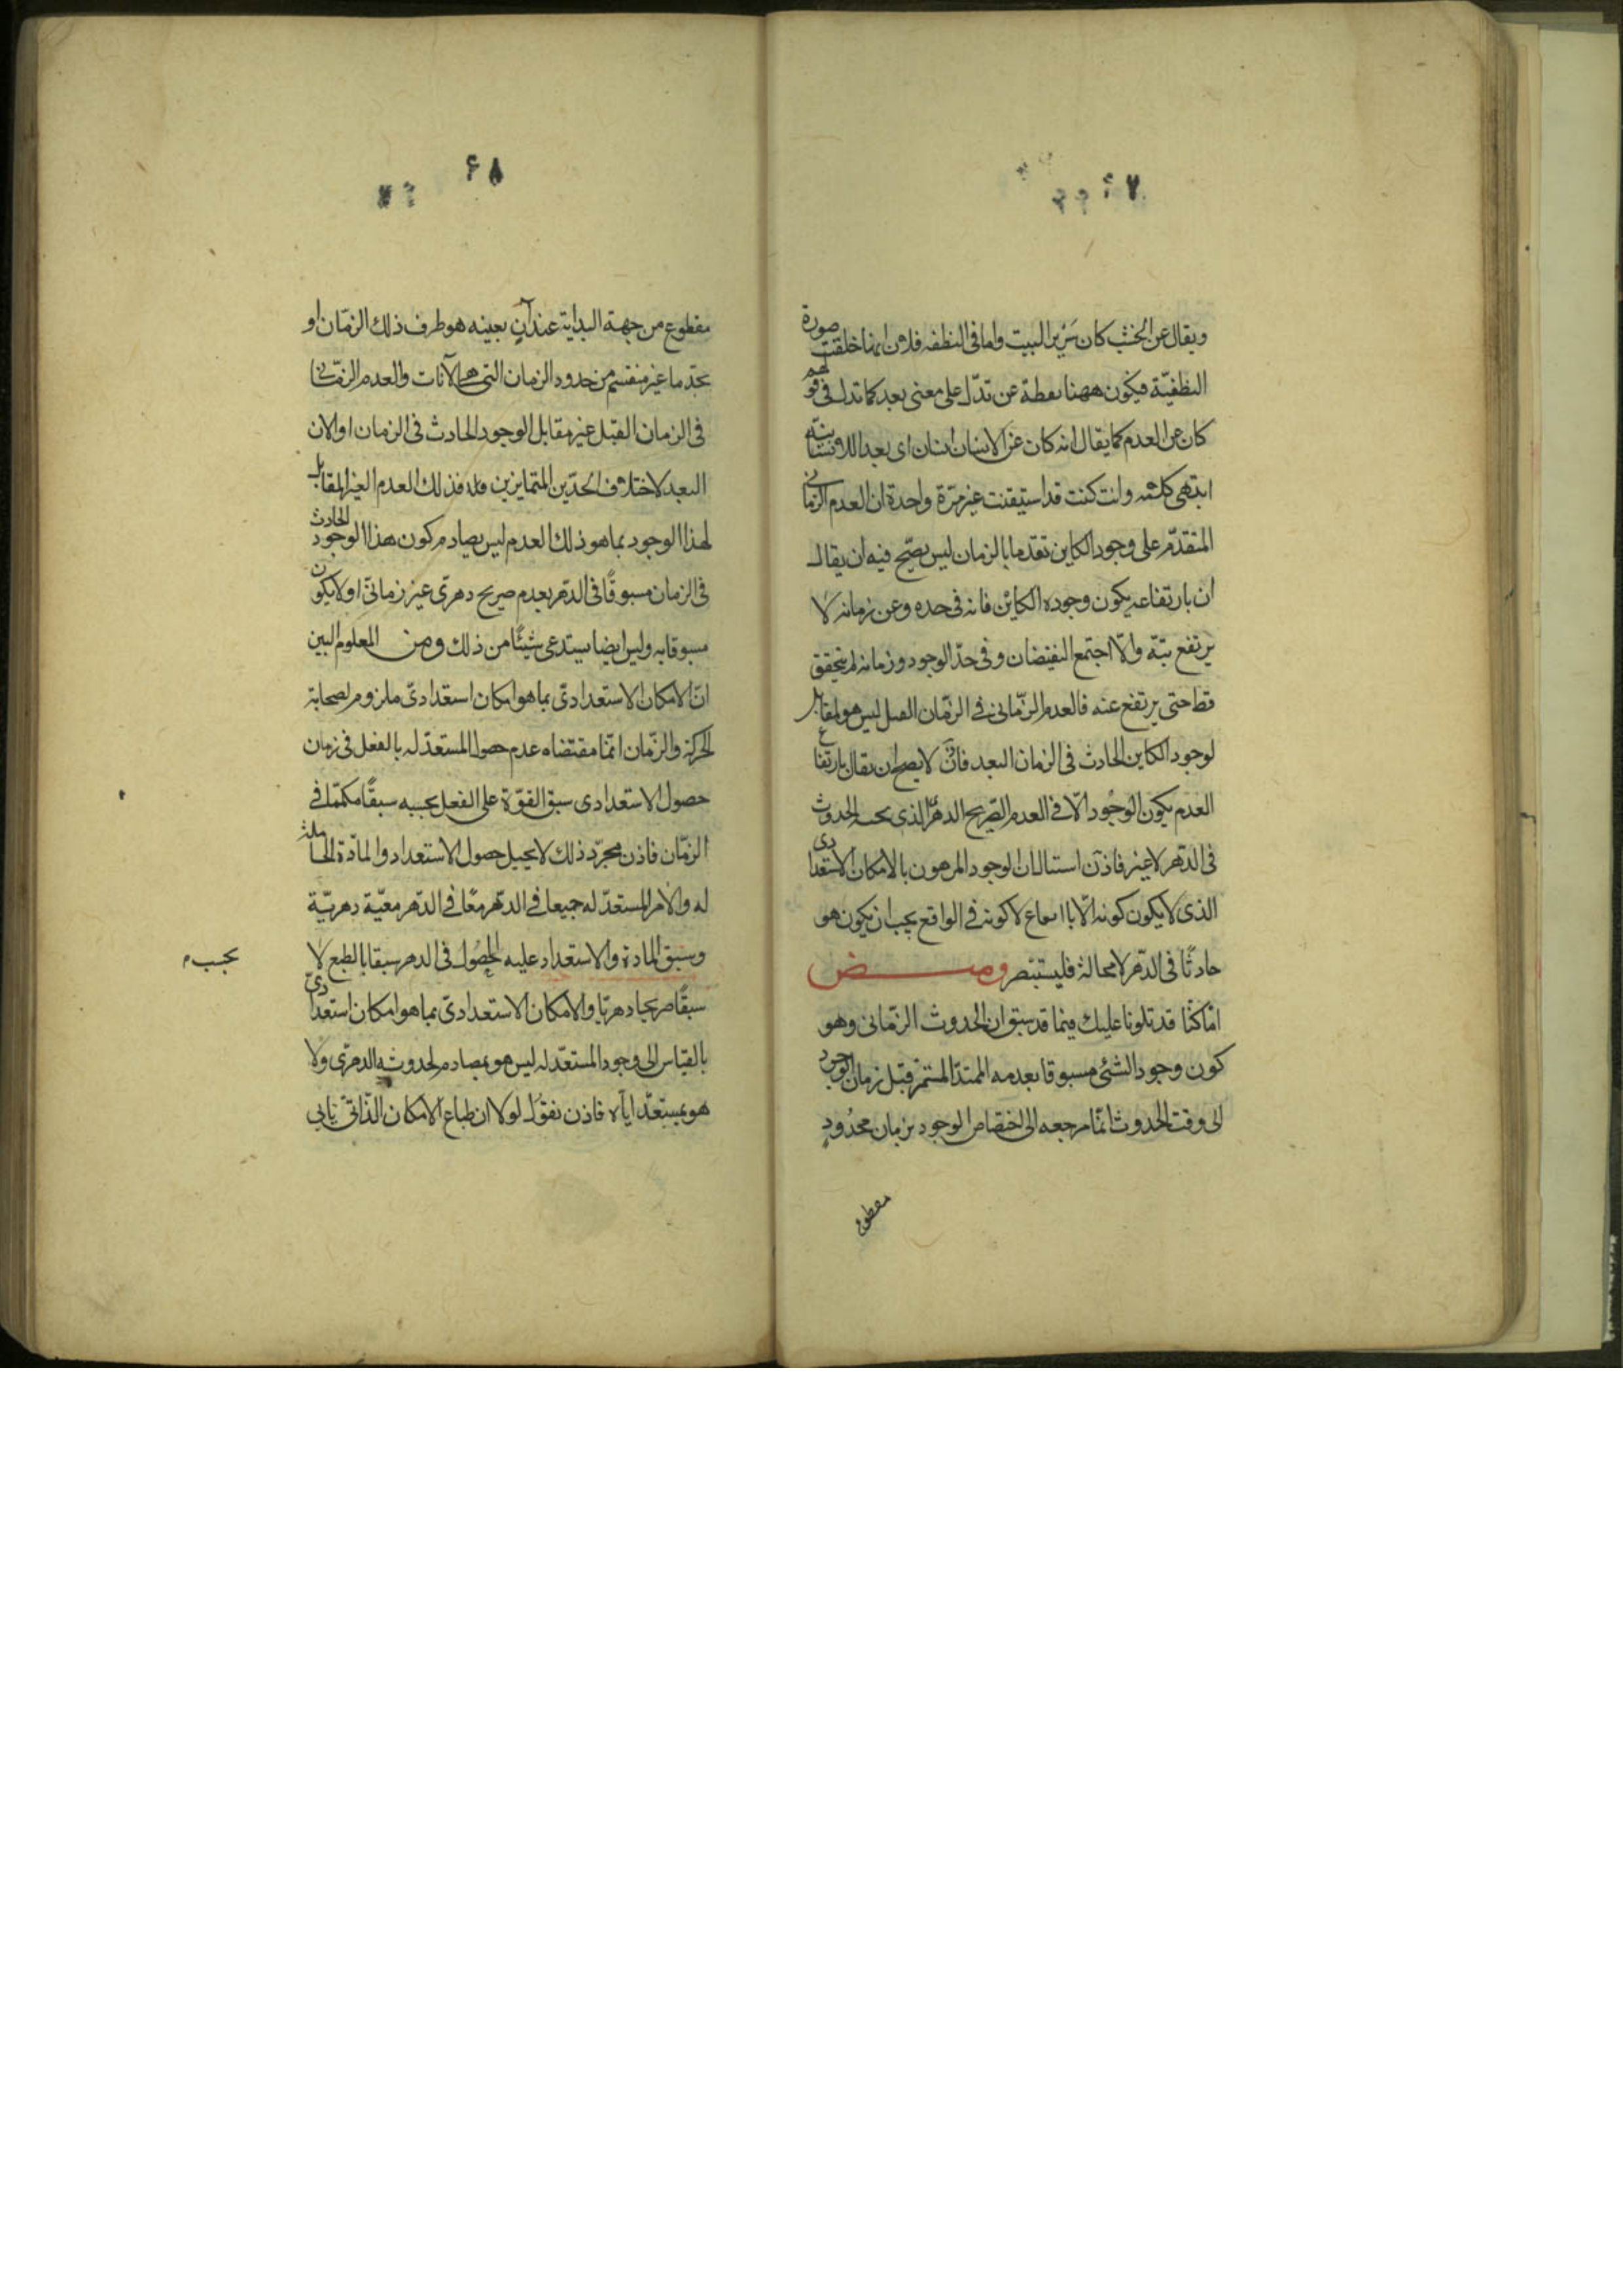 ۶۷
ويقال عن الخشب كان سرير البيت واما فى النطفه فلان انما خلقت صورة
النطفيّة فيكون ههنا لفظة عن تدّل على معنى بعد كما تدل فى قولهم
كان عن العدم كما يقال انه كان عن الانسان انسان اى بعد
انتهى كلامه وانت كنت قد استيقنت غير مرّة واحدة ان العدم الزمانى
المتقدّم على وجود الكاين تقدما بالزمان ليس يصّح فيه ان يقال
ان بارتفاعه يكون وجوده الكائن فانه فى حده وعن زمانه لا
يرتفع بتّة والّا اجتمع النقيضان وفى حدّ الوجود وزمانه لم يتحقق
قط حتى يرتفع عنه فالعدم الزّمانى فى الزّمان القبل ليس هو بمقابل
لوجود الكاين الحادث فى الزمان البعد فاذن لا يصح ان يقال بارتفاع
العدم يكون الوجود الّا فى العدم الصّريح الدهرىّ الذى بحسبه الحدوث
فى الدّهر لا غير فاذن استبان ان الوجود المرهون بالامكان الاستعدادى
الذى لا يكون كونه الّا لا كونه فى الواقع يجب ان يكون هو
حادثًا فى الدّهر لا محالة فليستبصر ومـــيـــض
انّا كنّا قد تلونا عليك فيما قد سبق ان الحدوث الزّمانى وهو
كون وجود الشئ مسبوقا بعدمه الممتدّ المستمرّ قبل زمان الوجود
الى وقت الحدوث انّما مرجعه الى اختصاص الوجود بزمان محدُود
مقطوع
۶۸
مقطوع من جهة البداية عند آنٍ بعينه هو طرف ذلك الزمّان او
بحدّ ما غير منقسم من حدود الزمان التى هى الآنات والعدم الزمّانى
فى الزمان القبل غير مقابل الوجود الحادث فى الزمان او الان
البعد لاختلاف الحدّين المتمايزين فاذن ذلك العدم الغير المقابل
لهذا الوجود بما هو ذلك العدم ليس يصادم كون هذا الوجود الحادث
فى الزمان مسبوقًا فى الدّهر بعدم صريح دهرى غير زمانىّ او لا يكون
مسبوقا به وليس ايضا يستدعى شيئًا من ذلك ومن المعلوم البين
انّ الامكان الاستعدادىّ بما هو امكان استعدادىّ ملزوم لصحابة
الحركة والزّمان انّما مقتضاه عدم حصول المستعدّ له بالفعل فى زمان
حصول الاستعدادى سبق القوّة على الفعل بحسبه سبقًا مكمّمًا فى
الزمّان فاذن مجرّد ذلك لا يحيل حصول الاستعداد والمادّة الحاملة
له والامر المستعدّ له جميعا فى الدّهر معًا فى الدّهر معيّة دهريّة
وسبق المادة والاستعداد عليه الحصُول فى الدهر سبقا بالطبع لا
بحسب م
سبقًا صريحا دهريّا والامكان الاستعدادىّ بما هو امكان استعدادىّ
بالقياس الى وجود المستعدّ له ليس هو بمصادم لحدوثه الدهرى ولا
هو بمستعدّ اياه فاذن نقوُل لولا ان طباع الامكان الذّاتىّ يابى